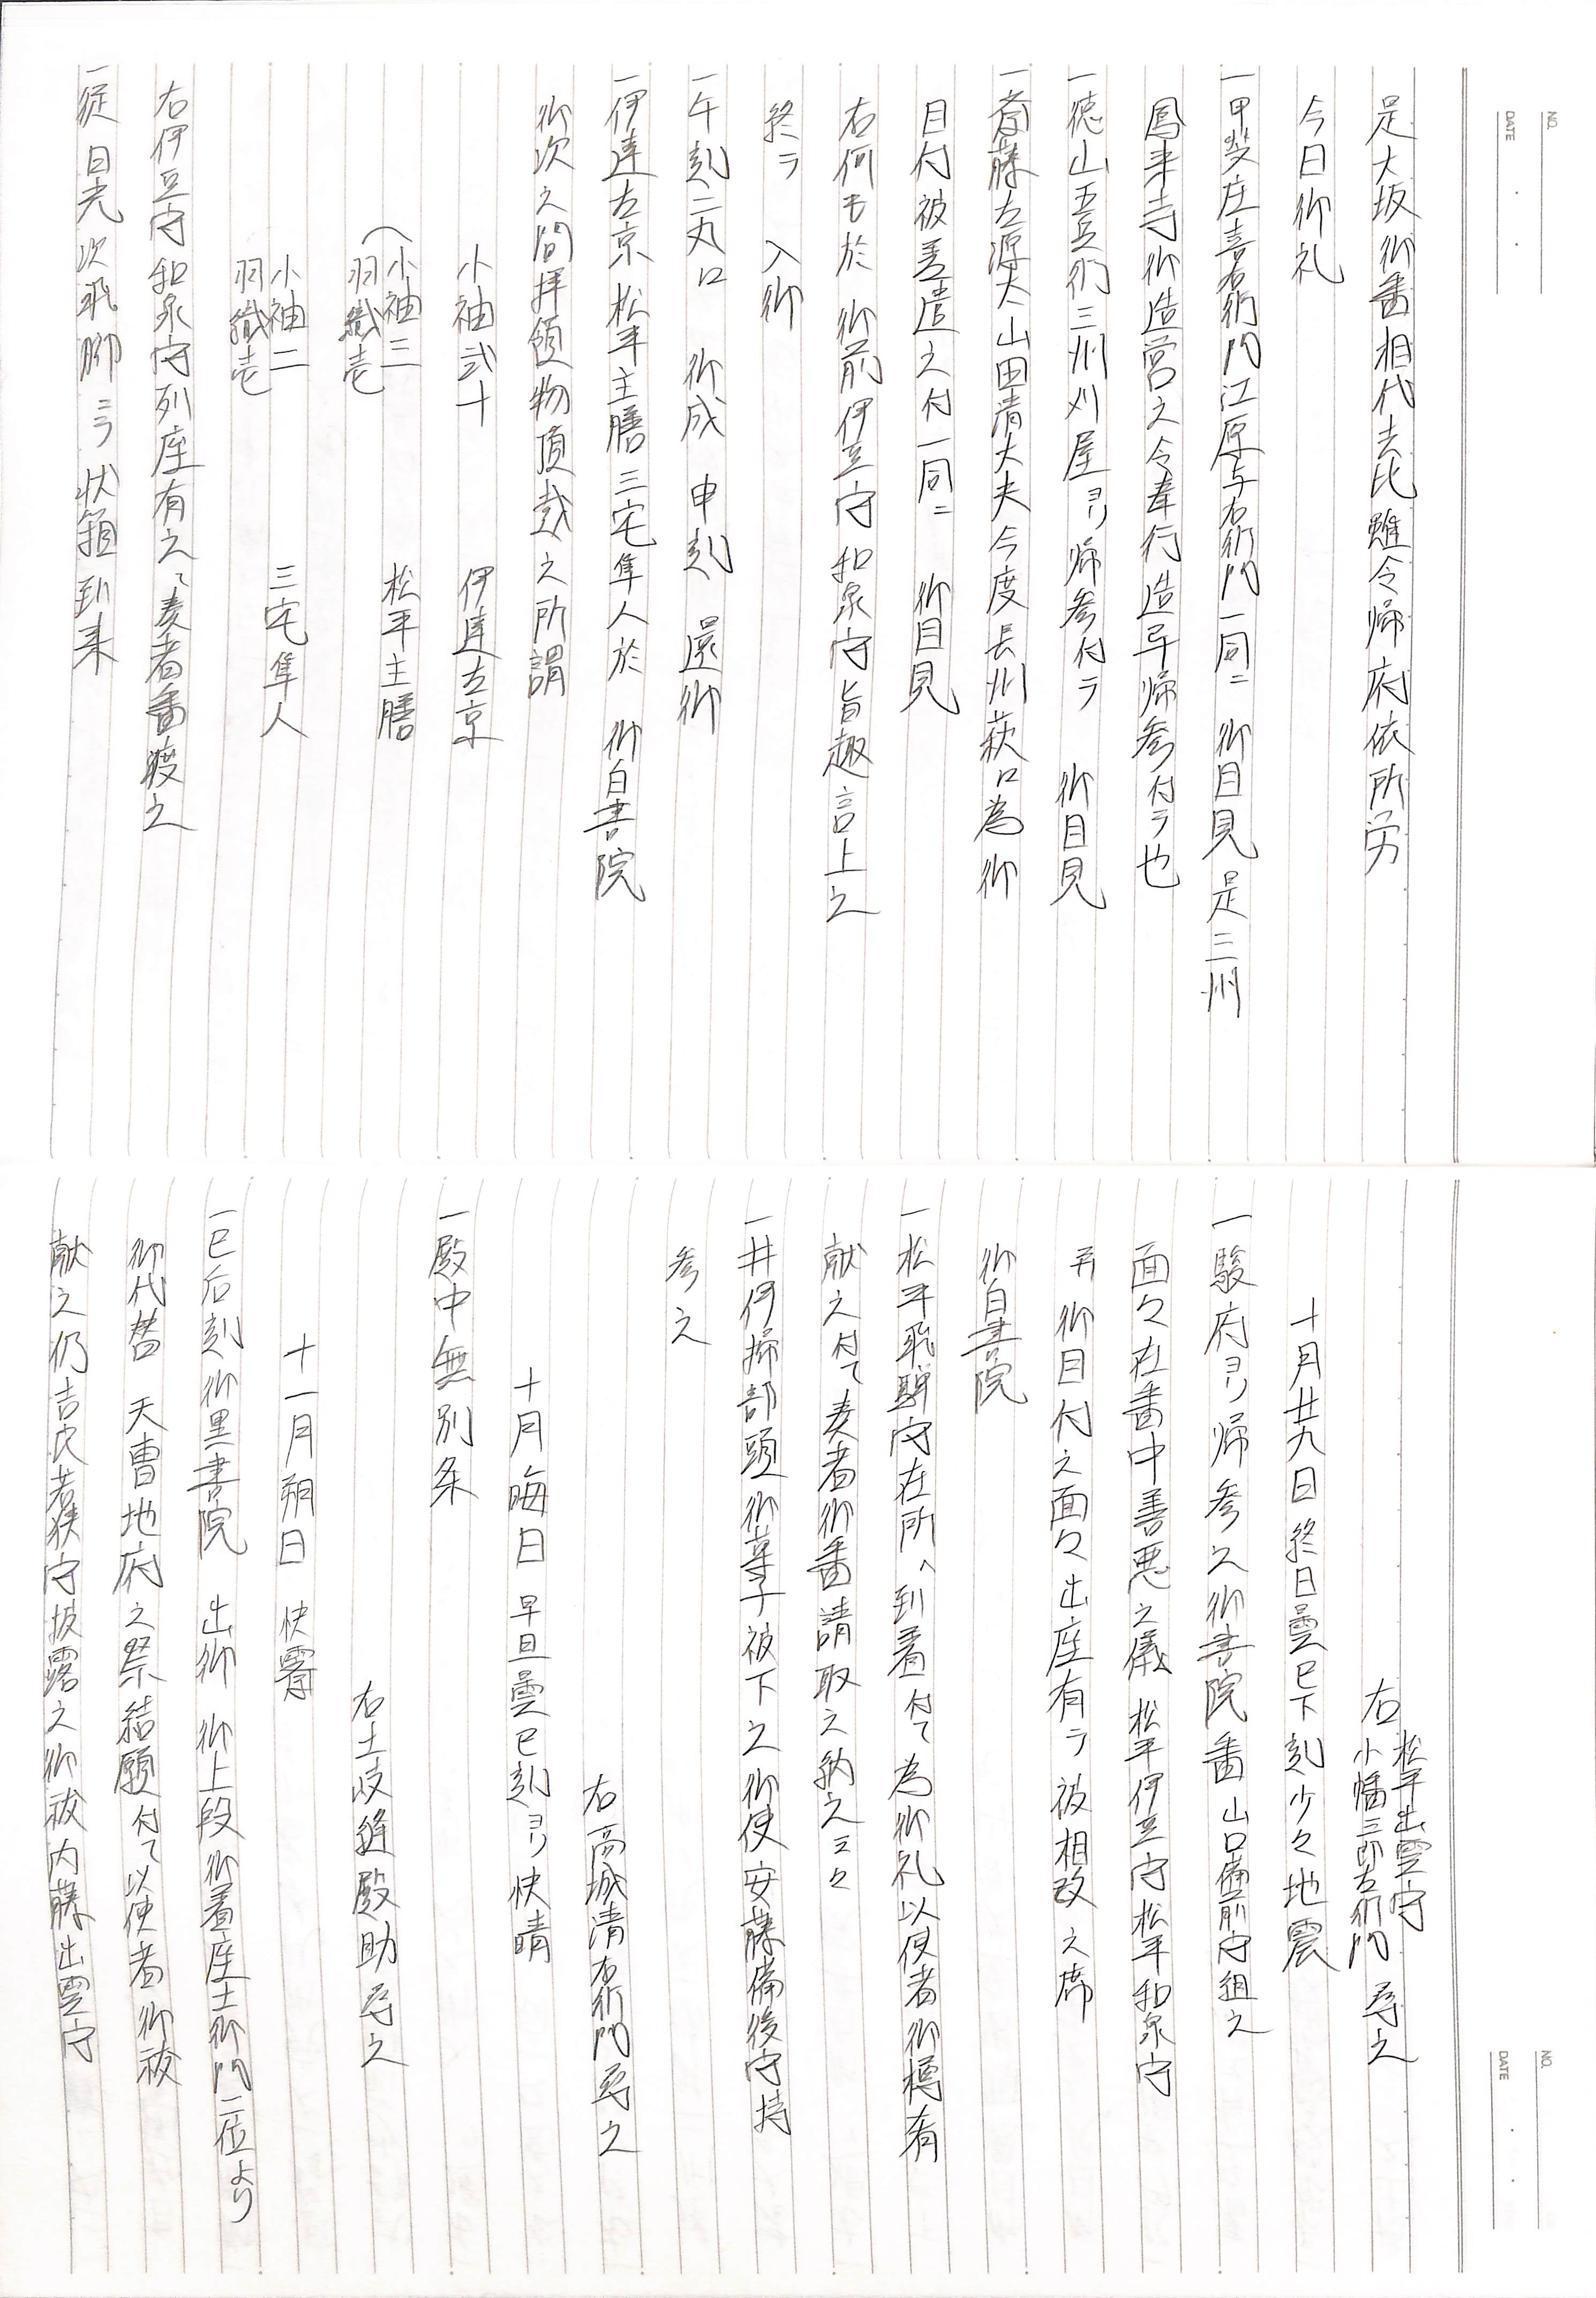 NO.
DATE
足大坂御番相代去比雖令帰府依所労
今日御礼
一甲斐庄喜右衛門江原与右衛門一同ニ 御目見 是三州
鳳来寺御造営之令奉行造畢帰参付テ也
一徳山五兵衛三州刈屋ヨリ帰参付テ 御目見
一斎藤左源太 山田清大夫 今度長州萩口為御
目付被差遣之付一同ニ 御目見
右何も於 御前 伊豆守 和泉守旨趣言上之
終テ 入御
一午刻二丸口 御成 申刻 還御
一伊達左京 松平主膳 三宅隼人於 御白書院
御次之間拝領物頂戴之所謂
小袖弐十 伊達左京
小袖三
羽織壱 松平主膳
小袖二
羽織壱 三宅隼人
右伊豆守 和泉守列座有之て奏者番渡之
一従 日光 次飛脚ニテ 状箱到来
NO.
DATE
右 松平出雲守
小幡三郎左衛門 尋之
十月廿九日 終日曇巳下刻少々地震
一駿府ヨリ帰参之御書院番 山口備前守組之
面々在番中善悪之儀 松平伊豆守 松平和泉守
并御目付之面々出座有テ被相改之席
御白書院
一松平飛騨守在所へ到着付て為御礼以使者御樽肴
献之付て奏者御番請取之納之云々
一井伊掃部頭御菓子被下之御使安藤備後守持
参之
右高城清右衛門尋之
十月晦日 早旦曇巳刻ヨリ快晴
一殿中無別条
右土岐縫殿助尋之
十一月朔日 快霽
一巳后刻御黒書院 出御 御上段御着座土御門二位より
御代替 天曹地府之祭結願付て以使者御祓
献之仍吉良若狭守披露之御祓内藤出雲守